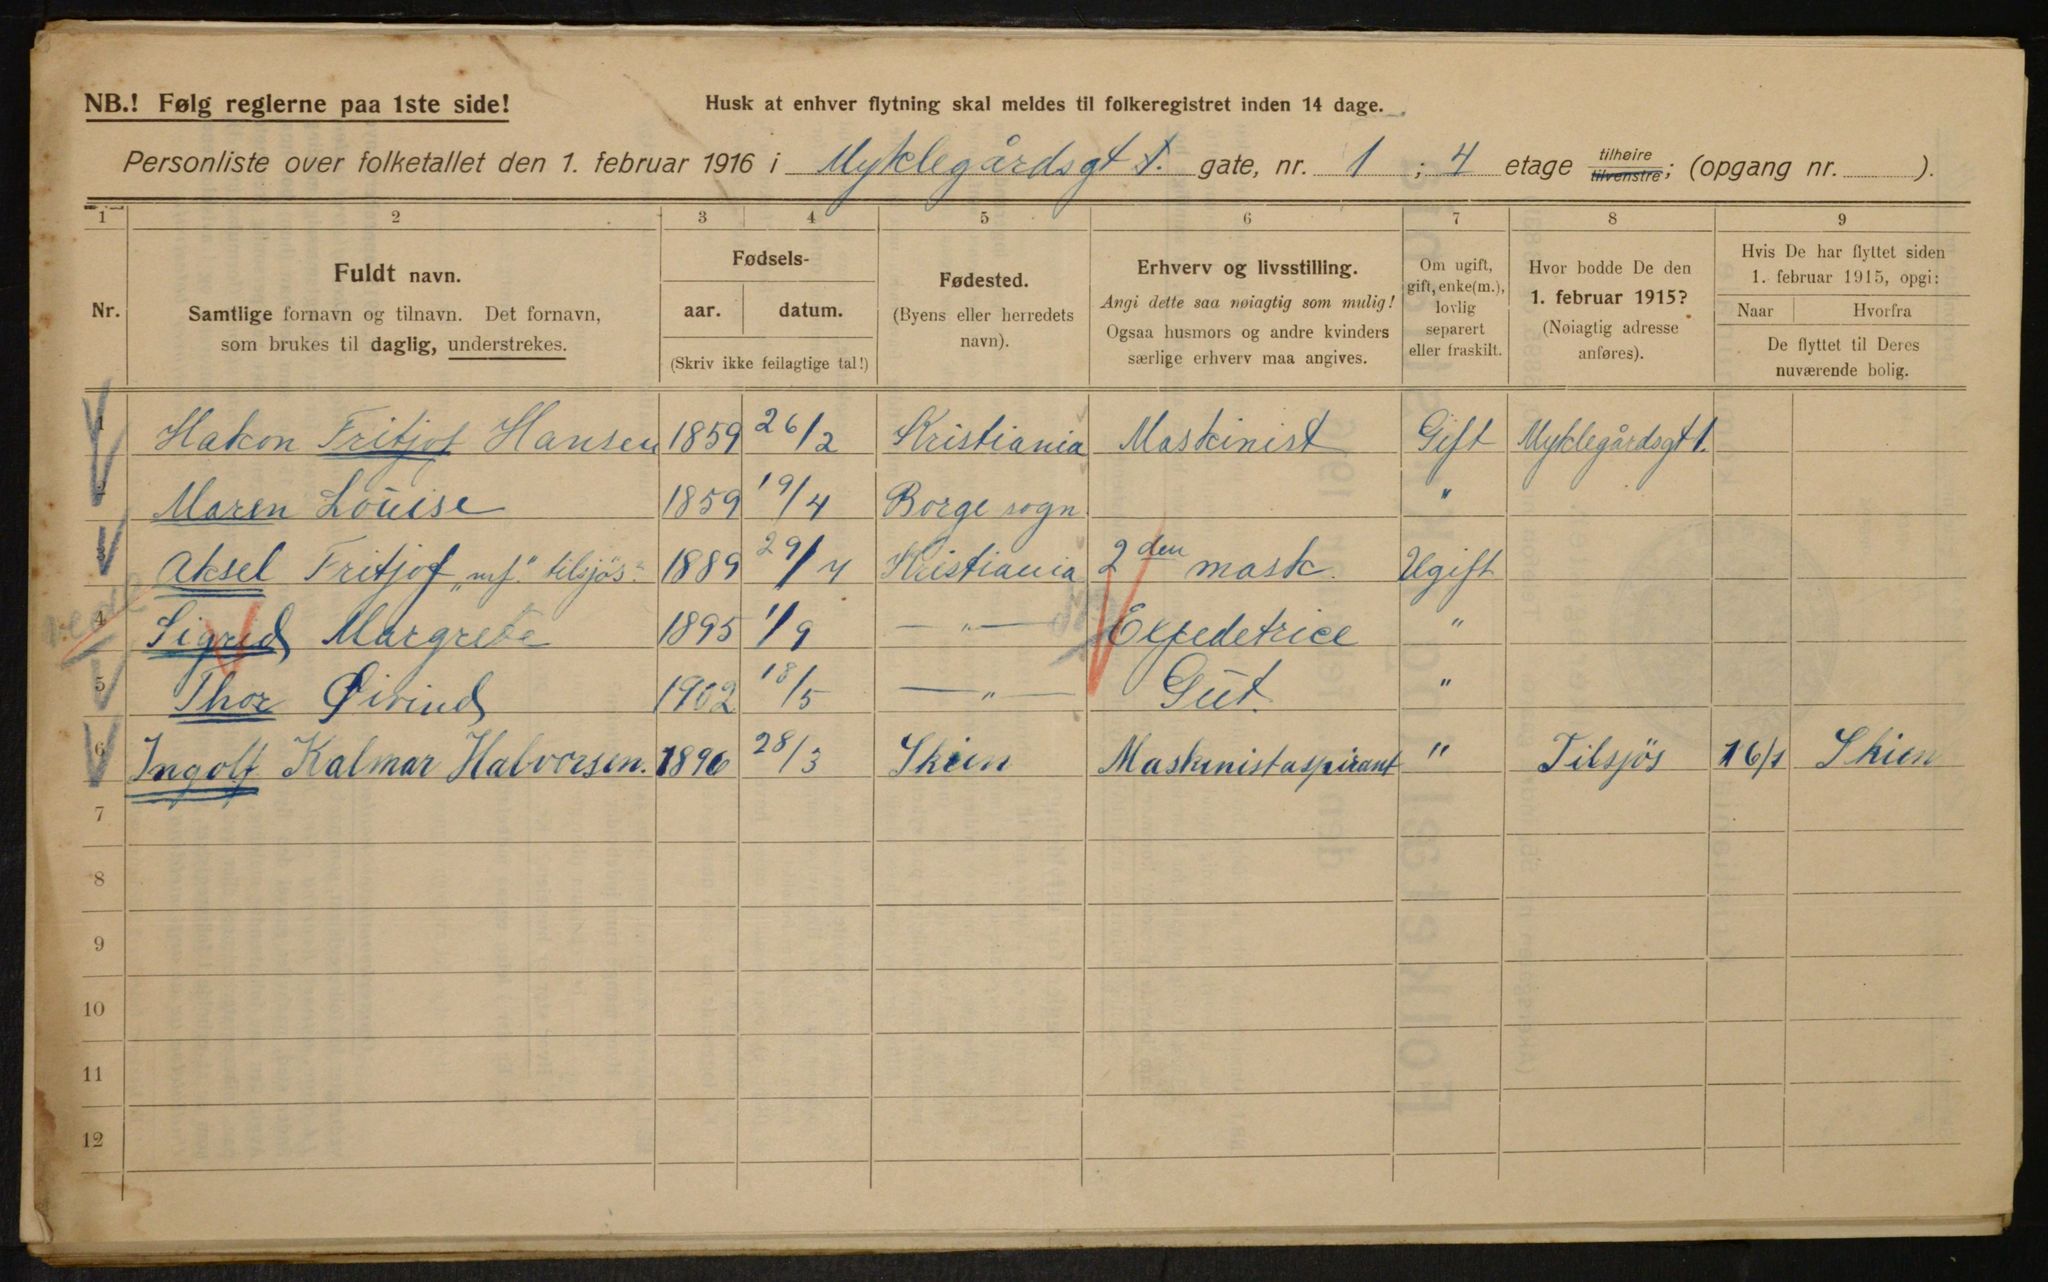 NB.! Følg reglerne paa 1ste side!
Husk at enhver flytning skal meldes til folkeregistret inden 14 dage.
Personliste over folketallet den 1. februar 1916 i Myklegårdsgt 1. gate, nr. 1 ; 4 etage tilhøire tilvenstre; (opgang nr. ).
1 2 3 4 5 6 7 8 9
Nr.
Fuldt navn.
Samtlige fornavn og tilnavn. Det fornavn,
som brukes til daglig, understrekes.
Fødsels-
aar. datum.
(Skriv ikke feilagtige tal!)
Fødested.
(Byens eller herredets
navn).
Erhverv og livsstilling.
Angi dette saa nøiagtig som mulig!
Ogsaa husmors og andre kvinders
særlige erhverv maa angives.
Om ugift,
gift, enke(m.),
lovlig
separert
eller fraskilt.
Hvor bodde De den
1. februar 1915?
(Nøiagtig adresse
anføres).
Hvis De har flyttet siden
1. februar 1915, opgi:
Naar Hvorfra
De flyttet til Deres
nuværende bolig.
1 Hakon Fritjof Hansen 1859 26/2 Kristiania Maskinist Gift Myklegårdsgt 1.
2 Maren Louise 1859 19/4 Borge sogn "
3 Aksel Fritjof "mf." tilsjös" 1889 29/4 Kristiania 2den mask. Ugift
4 Sigrid Margrete 1895 1/9 — " — Expedetrice "
5 Thor Øivind 1902 18/5 — " — Gut. "
6 Ingolf Kalmar Halvorsen. 1896 28/3 Skien Maskinistaspirant " Tilsjös 16/1 Skien
7
8
9
10
11
12